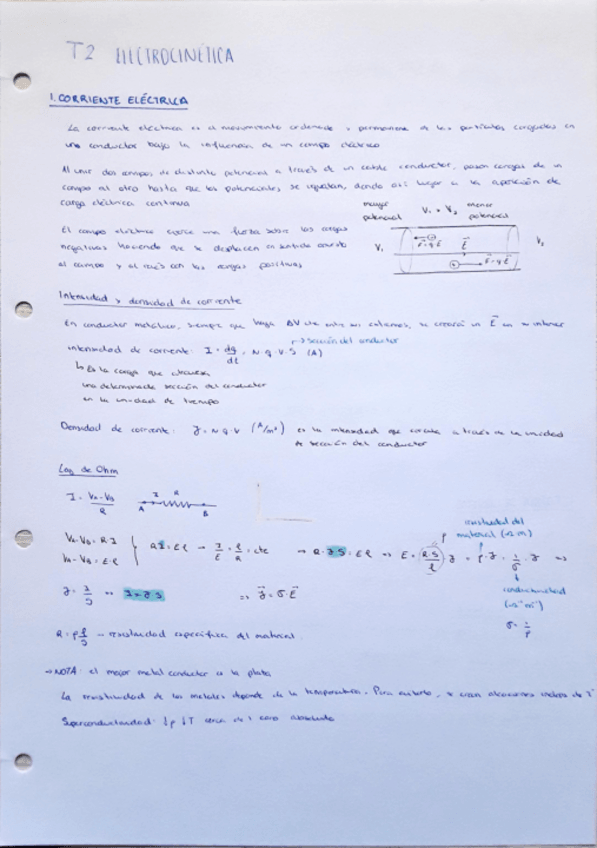 T2 ELECTROCINÉTICA
1. CORRIENTE ELÉCTRICA
La corriente eléctrica es el movimiento ordenado y permanente de las partículas cargadas en
un conductor bajo la influencia de un campo eléctrico
Al unir dos campos de distinto potencial a través de un cable conductor, pasan cargas de un
campo al otro hasta que los potenciales se igualan, dando así lugar a la aparición de
carga eléctrica continua
mayor potencial V₁ > V₂ menor potencial
El campo eléctrico ejerce una fuerza sobre las cargas
negativas haciendo que se desplacen en sentido
al campo y al revés con las cargas positivas
V₁ F=q·E E F=q·E V₂
Intensidad y densidad de corriente
En conductor metálico, siempre que haya ΔV cte entre sus extremos, se creará un E en su interior
→ sección del conductor
intensidad de corriente: I = dq/dt = N·q·V·S (A)
↳ Es la carga que atraviesa
una determinada sección del conductor
en la unidad de tiempo
Densidad de corriente: J = N·q·V (A/m²) es la intensidad que circula a través de la unidad
de sección del conductor
Ley de Ohm
I = (VA-VB)/R A I R B
resistividad del
material (Ω·m)
VA-VB = R·I
VA-VB = E·l
RI = El → I/E = l/R = cte → R·J·S = E·l ⇒ E = (R·S/l) J = ρ·J = 1/σ · J ⇒
J = I/S ⇒ I = J·S ⇒ J = σ·E
conductividad
(Ω⁻¹m⁻¹)
σ = 1/ρ
R = ρ l/S → resistividad específica del material
→ NOTA: el mejor metal conductor es la plata
La resistividad de los metales depende de la temperatura. Para evitarlo, se crean aleaciones
Superconductividad: ↓ρ ↓T cerca del cero absoluto